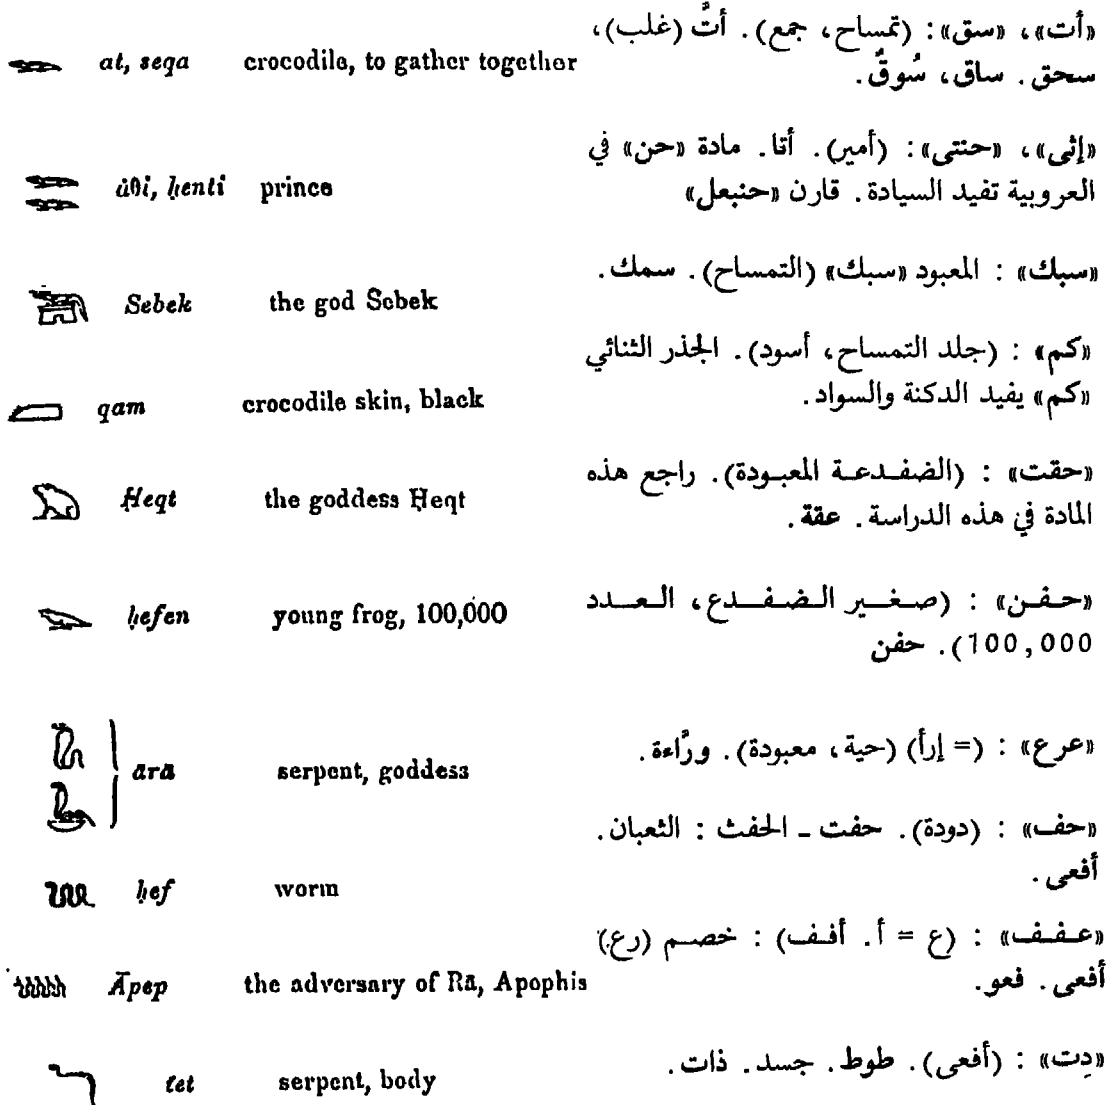 at, seqa crocodile, to gather together
«أت»، «سق»: (تمساح، جمع). أتَّ (غلب)،
سحق. ساق، سُوقٌ.
ȧθi, ḥenti prince
«إثي»، «حنتي»: (أمير). أتا. مادة «حن» في
العروبية تفيد السيادة. قارن «حنبعل»
Sebek the god Sebek
«سبك» : المعبود «سبك» (التمساح). سمك.
qam crocodile skin, black
«كم» : (جلد التمساح، أسود). الجذر الثنائي
«كم» يفيد الدكنة والسواد.
Ḥeqt the goddess Ḥeqt
«حقت» : (الضفدعة المعبودة). راجع هذه
المادة في هذه الدراسة. عقة.
ḥefen young frog, 100,000
«حفن» : (صغير الضفدع، العدد
100,000). حفن
ārā serpent, goddess
«عرع» : (= إرأ) (حية، معبودة). ورَّاءة.
ḥef worm
«حف» : (دودة). حفت ـ الحفث : الثعبان.
أفعى.
Āpep the adversary of Rā, Apophis
«عفف» : (ع = أ. أفف) : خصم (رع)
أفعى. فعو.
tet serpent, body
«دِت» : (أفعى). طوط. جسد. ذات.